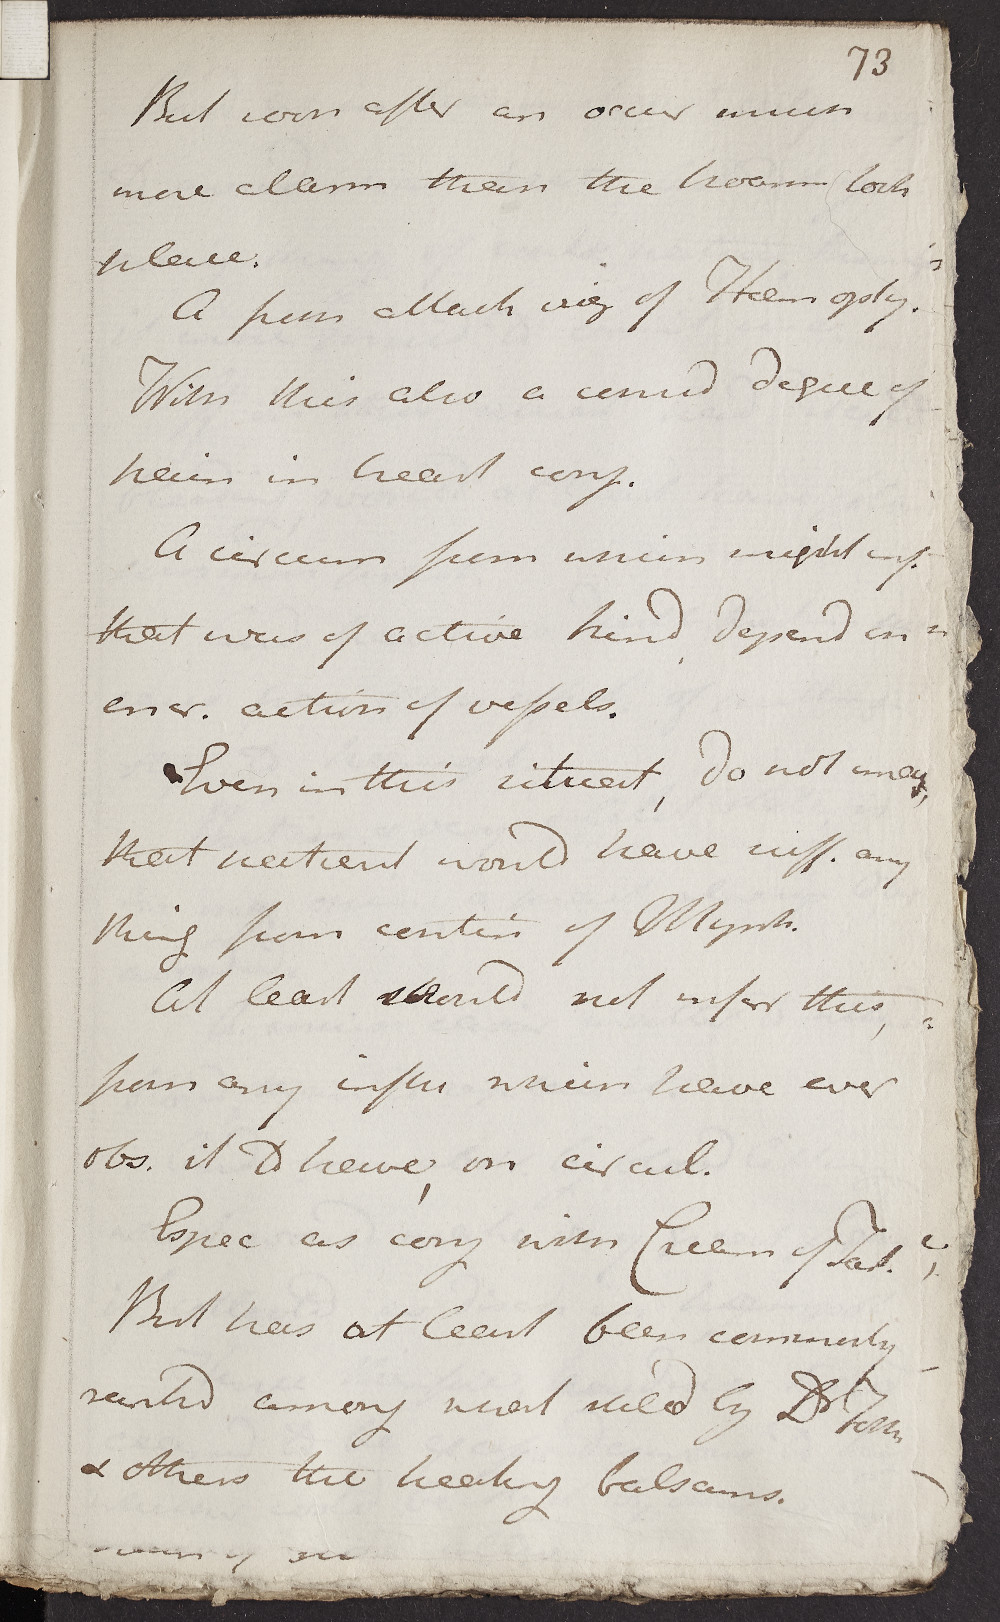 73
But soon after an occur much
more alarm than the hoarsn took
place.
A fresh attack viz of Hemopty.
With this also a consid degree of
pain in head cony.
A circum from which might
that was of active kind, depend on
encr. action of vessels.
Even in this situat, do not imag,
that patient would have suff. any
thing from contin of Myrrh.
At least should not infer this,
from any influ which have ever
obs. it to have, on circul.
Espec as conj with Cream of Tart.
But has at least been commonly
rank'd among what stiled by Dr Foth
& others the heating balsams.